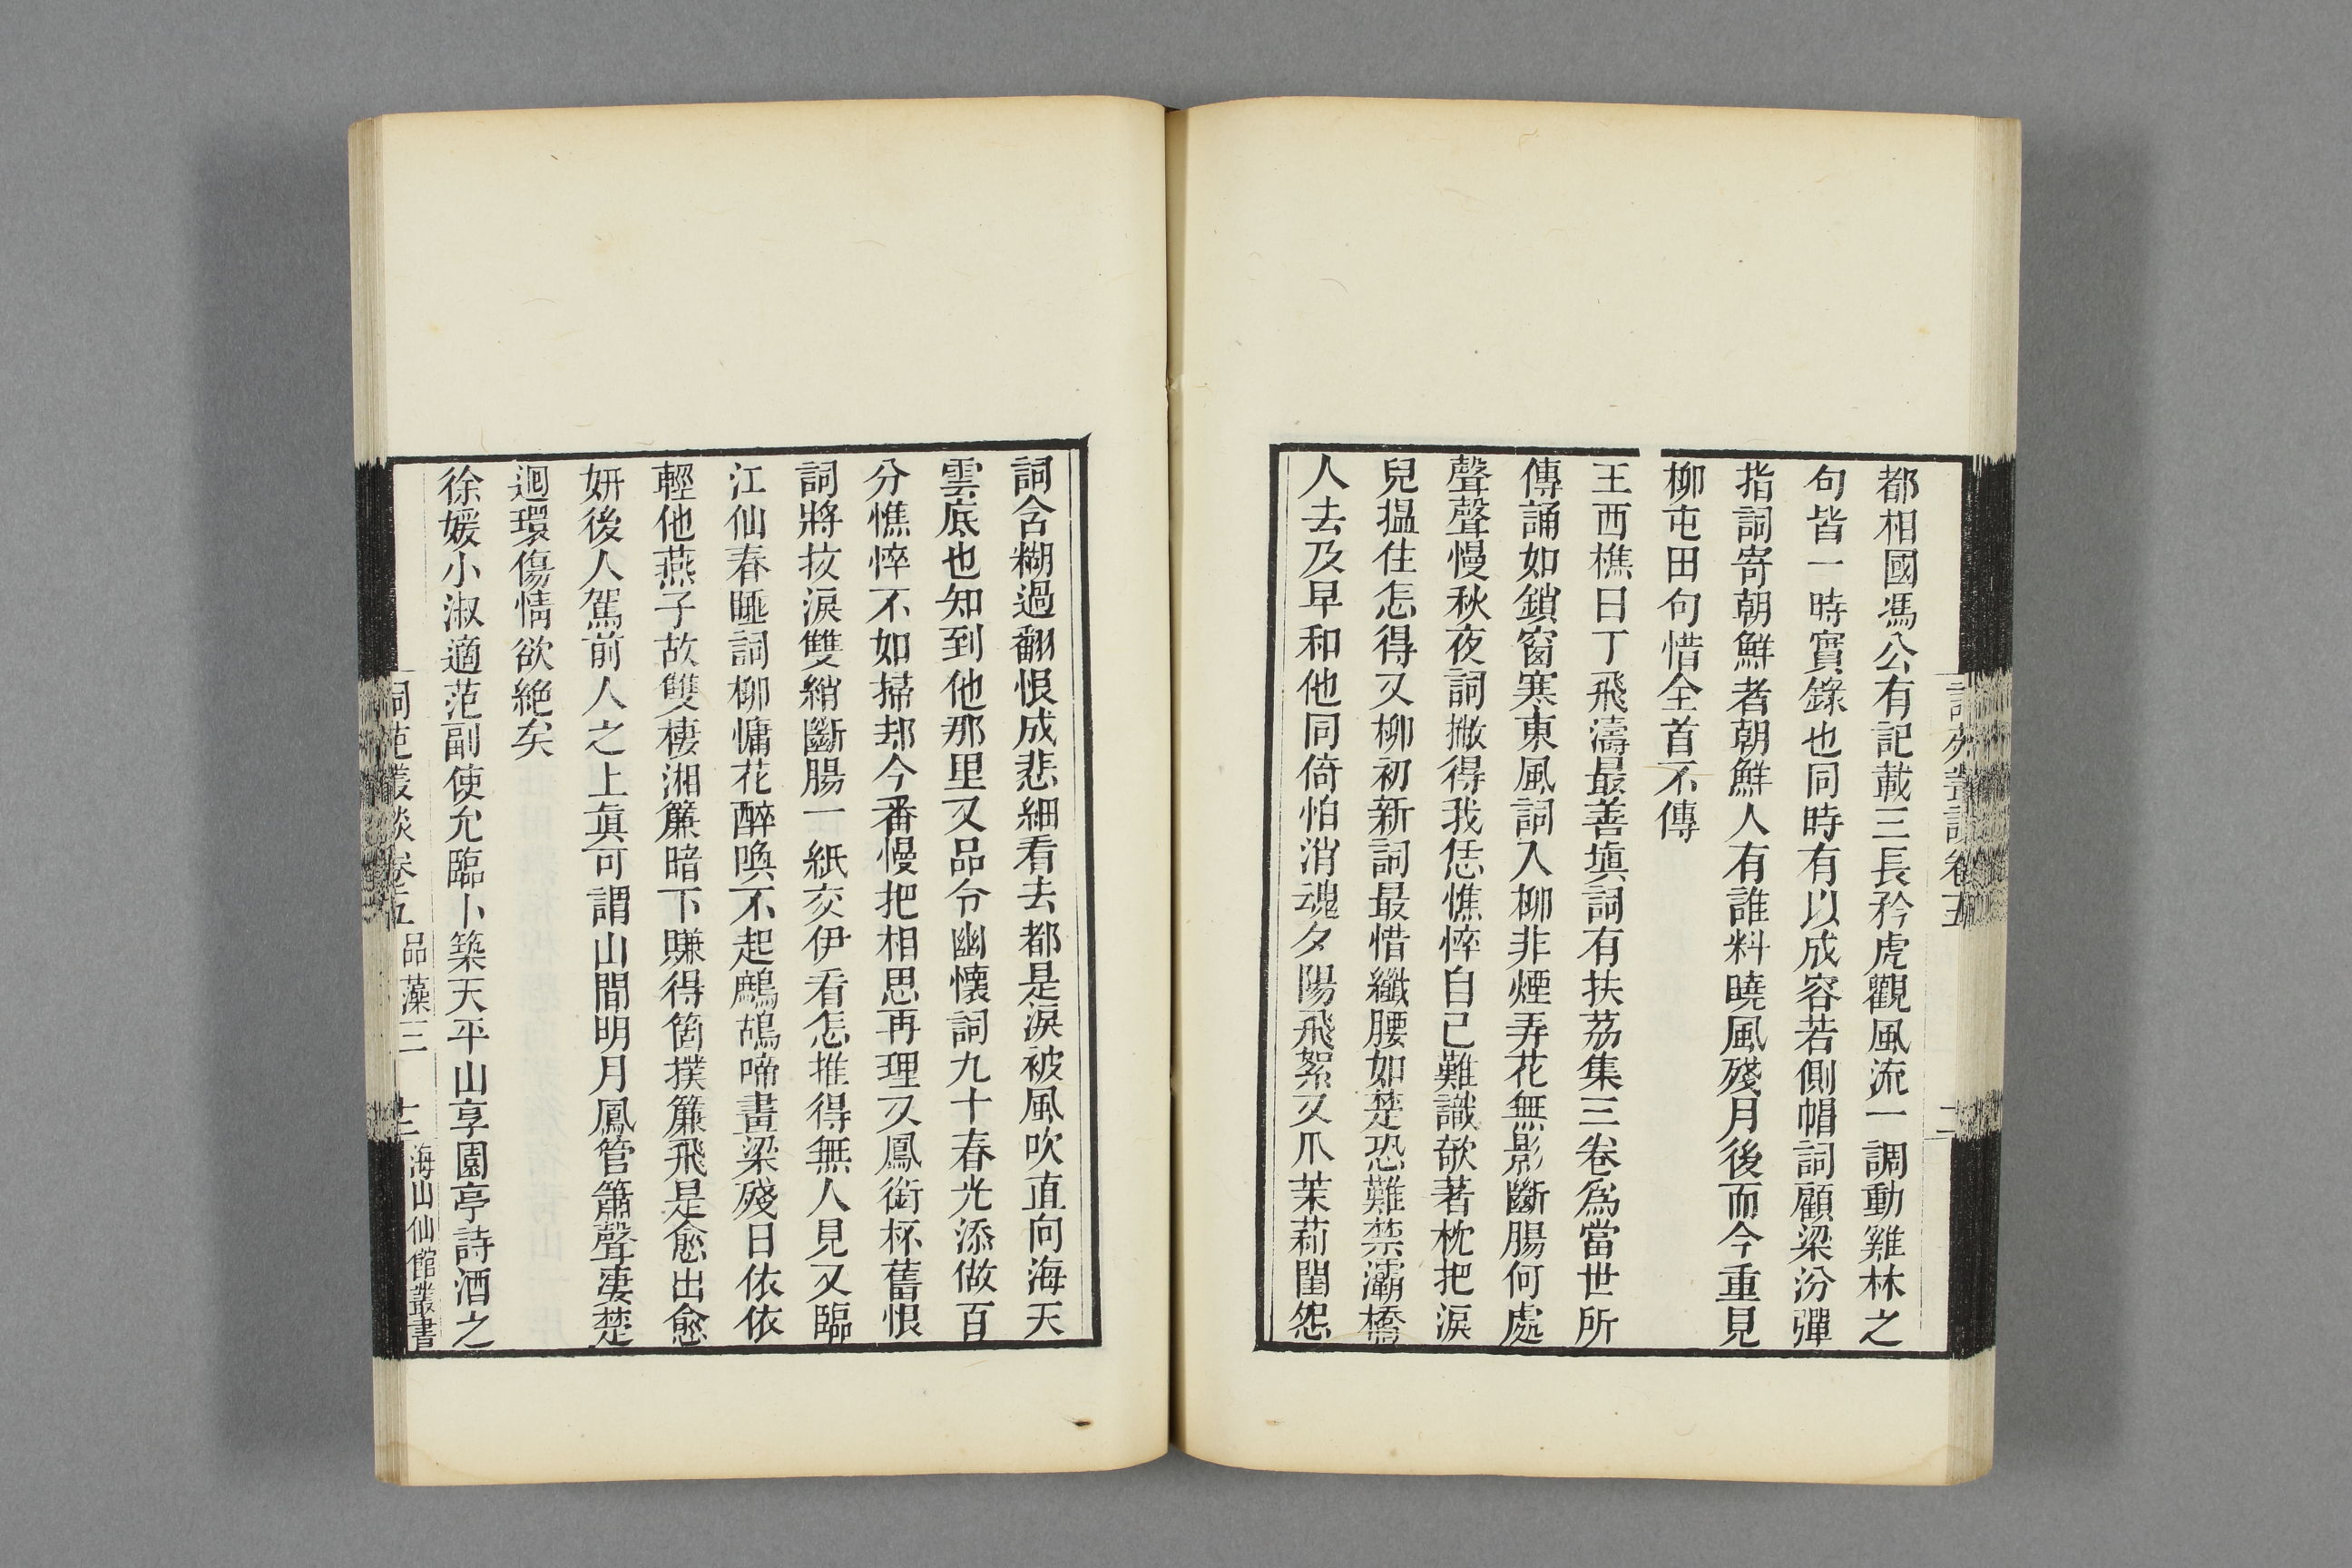 都相國馮公有記載三長矜虎觀風流一調動雞林之
句皆一時實錄也同時有以成容若側帽詞顧梁汾彈
指詞寄朝鮮者朝鮮人有誰料曉風殘月後而今重見
柳屯田句惜全首不傳
王西樵曰丁飛濤最善塡詞有扶荔集三卷爲當世所
傳誦如鎖窗寒東風詞入柳非煙弄花無影斷腸何處
聲聲慢秋夜詞撇得我恁憔悴自已難識欹著枕把淚
兒搵住怎得又柳初新詞最惜纖腰如楚恐難禁灞橋
人去及早和他同倚怕消魂夕陽飛絮又爪茉莉閨怨
詞含糊過翻恨成悲細看去都是淚被風吹直向海天
雲底也知到他那里又品令幽懷詞九十春光添做百
分憔悴不如掃却今番慢把相思再理又鳳銜杯舊恨
詞將抆淚雙綃斷腸一紙交伊看怎推得無人見又臨
江仙春睡詞柳慵花醉喚不起鷓鴣啼畫梁殘日依依
輕他燕子故雙棲湘簾暗下賺得箇撲簾飛是愈出愈
妍後人駕前人之上眞可謂山間明月鳳管簫聲凄楚
迴環傷情欲絕矣
徐媛小淑適范副使允臨卜築天平山享園亭詩酒之
詞苑叢談卷五 品藻三 十三 海山仙館叢書